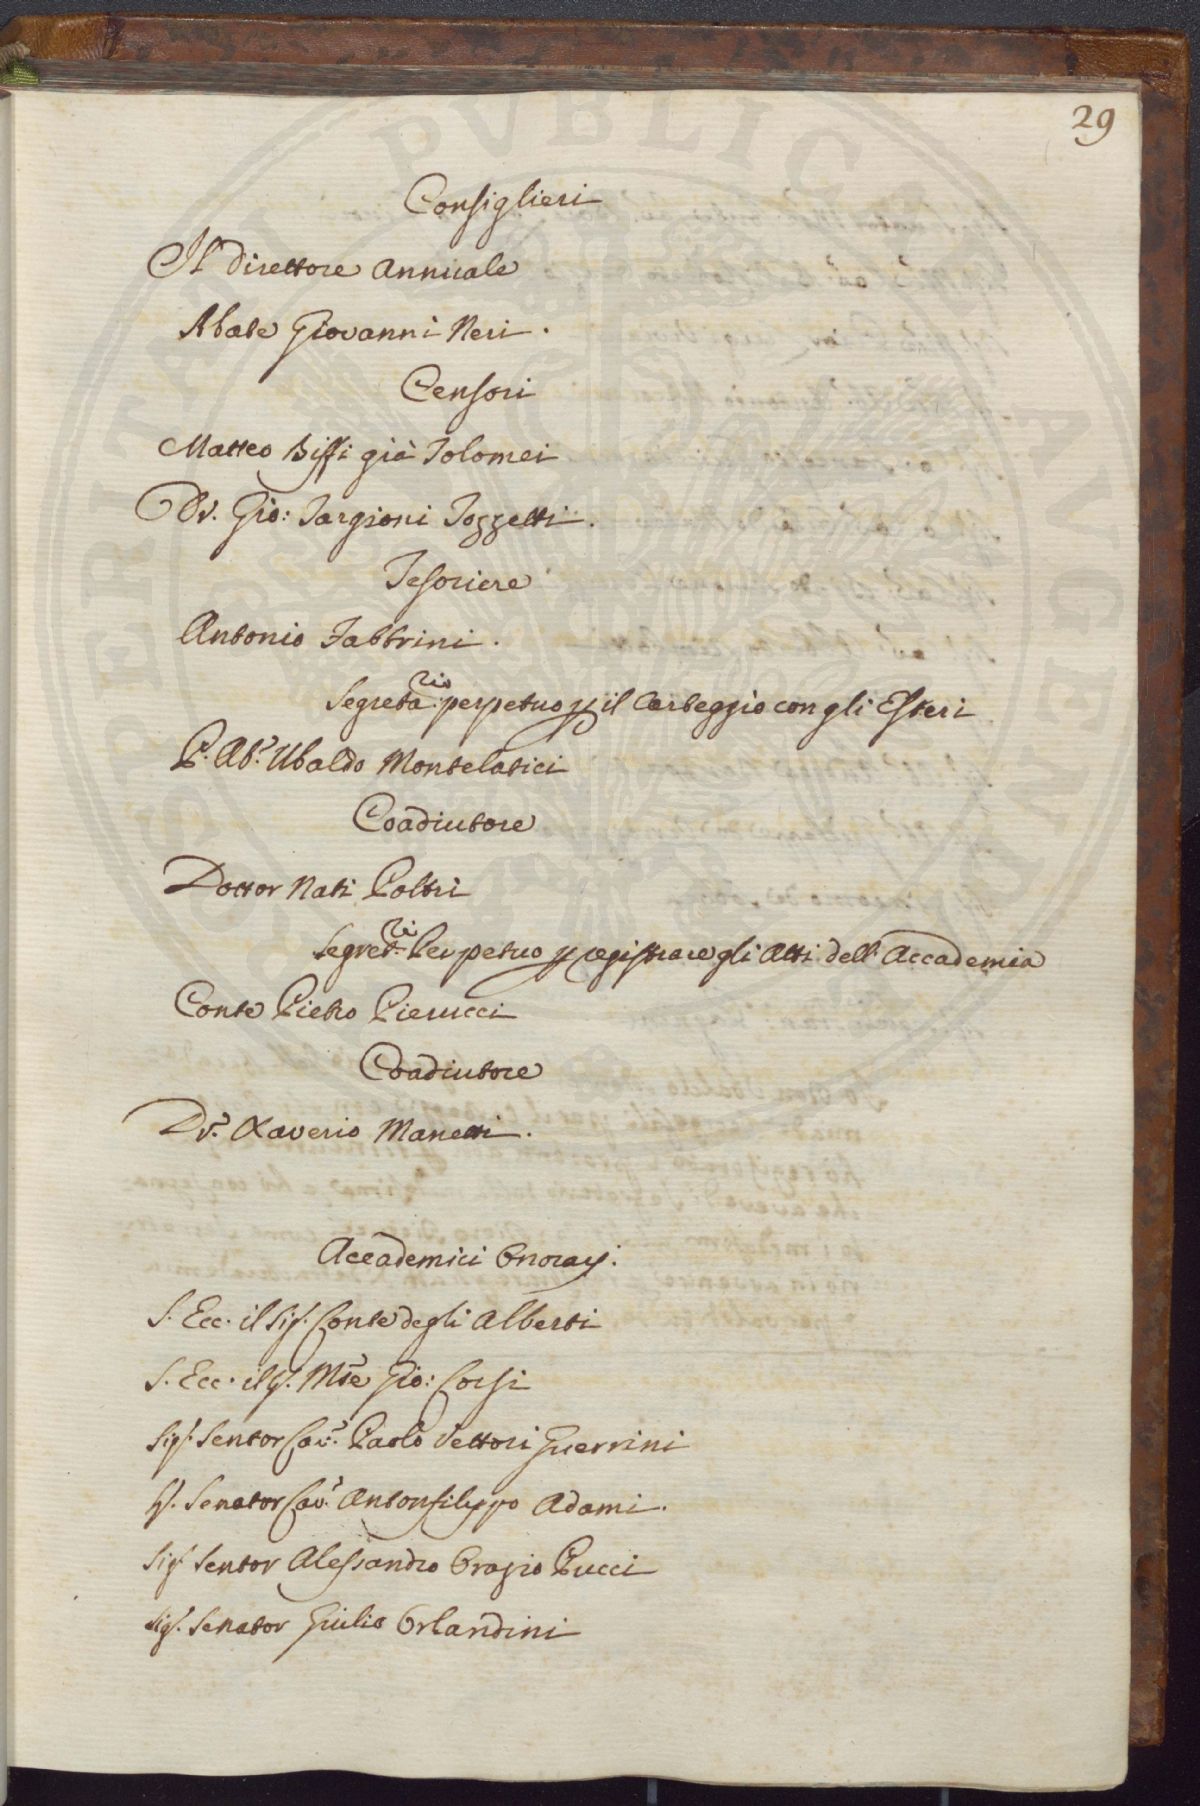 29
Consiglieri
Il Direttore Annuale
Abate Giovanni Neri.
Censori
Matteo Biffi già Tolomei
Dr. Gio: Targioni Tozzetti.
Tesoriere
Antonio Fabbrini.
Segreta.rio perpetuo p il Carteggio con gli Esteri
P. Ab.e Ubaldo Montelatici
Coadiutore
Dottor Nati Poltri
Segret.rio Perpetuo p registrare gli Atti dell'Accademia
Conte Pietro Pierucci
Coadiutore
Dr. Xaverio Manetti.
Accademici Onorarj.
S. Ecc. il Sig. Conte degli Alberti
S. Ecc. il Sig. Mse Gio: Corsi
Sig. Sentor Cav. Paolo Vettori Guerrini
Sig. Senator Cav. Antonfilippo Adami.
Sig. Sentor Alessandro Orazio Pucci
Sig. Senator Giulio Orlandini
PVBLIC